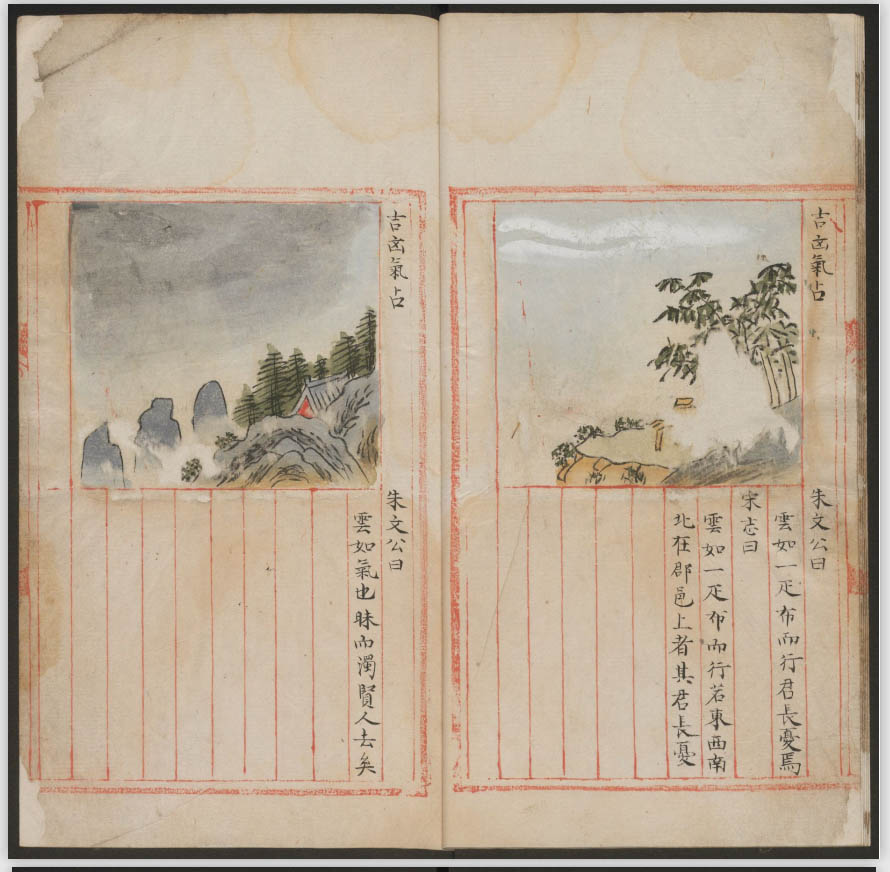 吉凶氣占
朱文公曰
雲如一疋布而行君長憂焉
宋志曰
雲如一疋布而行若東西南
北在郡邑上者其君長憂
吉凶氣占
朱文公曰
雲如氣也昧而濁賢人去矣